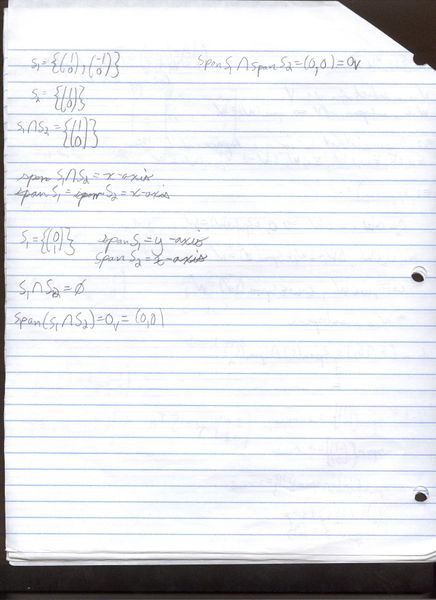 S₁ = {(1 0), (-1 0)}
span S₁ ∩ span S₂ = (0,0) = 0ᵥ
S₂ = {(1 0)}
S₁ ∩ S₂ = {(1 0)}
span S₁ ∩ S₂ = x-axis
span S₁ = span S₂ = x-axis
S₁ = {(0 1)} span S₁ = y-axis
span S₂ = x-axis
S₁ ∩ S₂ = ∅
span(S₁ ∩ S₂) = 0ᵥ = (0,0)